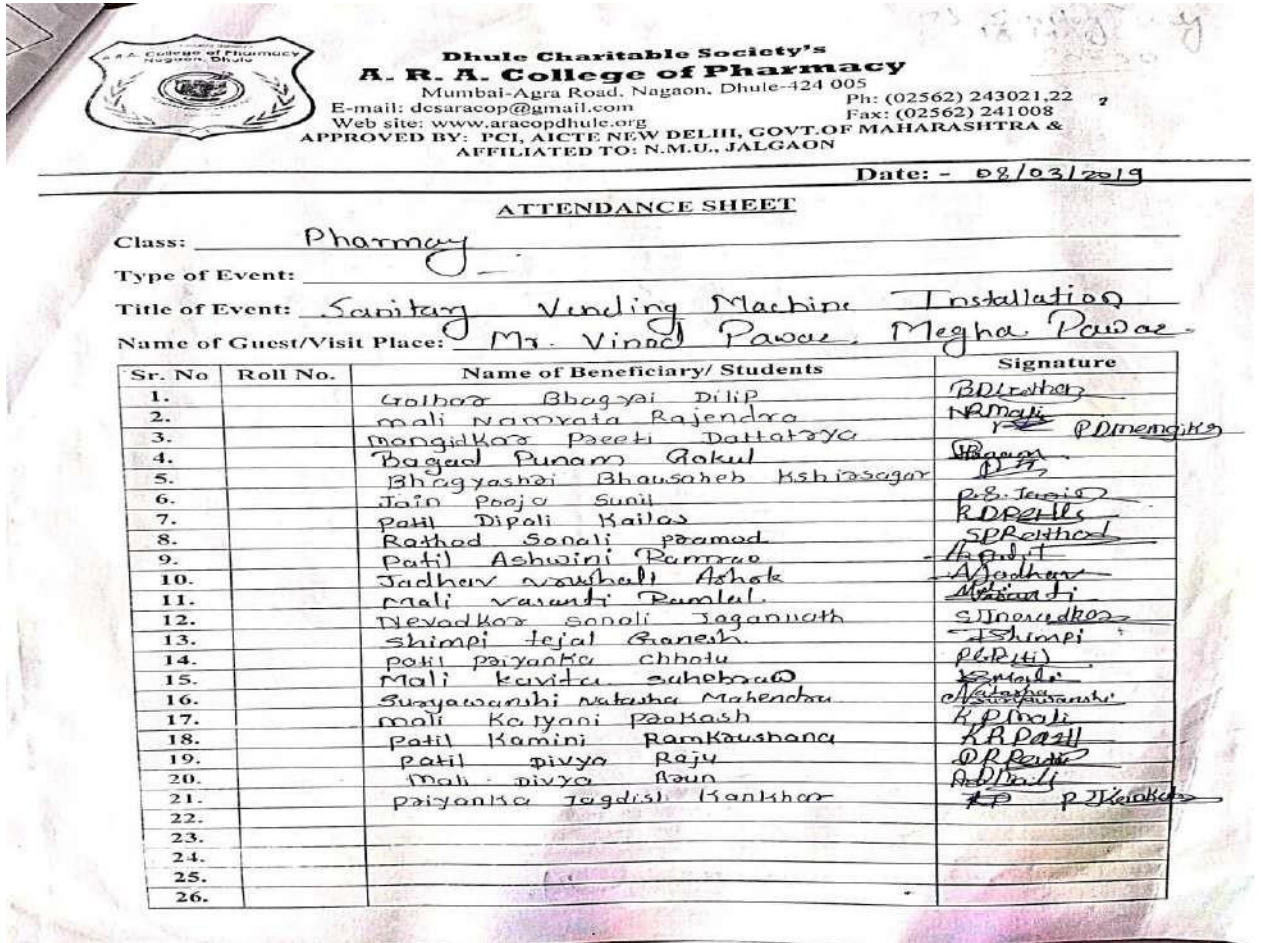 A.R.A. College of Pharmacy
Nagaon, Dhule
Dhule Charitable Society's
A. R. A. College of Pharmacy
Mumbai-Agra Road, Nagaon, Dhule-424 005
E-mail: dcsaracop@gmail.com Ph: (02562) 243021,22
Web site: www.aracopdhule.org Fax: (02562) 241008
APPROVED BY: PCI, AICTE NEW DELHI, GOVT.OF MAHARASHTRA &
AFFILIATED TO: N.M.U., JALGAON
Date: - 08/03/2019
ATTENDANCE SHEET
Class: Pharmay
Type of Event: -
Title of Event: Sanitary Vending Machine Installation
Name of Guest/Visit Place: Mr. Vinod Pawar, Megha Pawar.
Sr. No Roll No. Name of Beneficiary/ Students Signature
1. Dilip
2. mali Namrata Rajendra NRMali
3. Preeti Dattatrya
4. Bagad Punam Gokul
5. Bhagyashri Bhausaheb Kshirsagar
6. Jain Pooja Sunil
7. Patil Dipali Kailas
8. Rathod Sonali pramod SPRathod
9. Patil Ashwini Ramrao
10. Jadhav Ashok AJadhav
11. mali vasanti Ramlal.
12. Nevadkar sonali Jagannath
13. Shimpi tejal Ganesh TShimpi
14. patil priyanka chhotu
15. Mali kavita sahebrao
16. Suryawanshi Natasha Mahendra Natasha Suryawanshi
17. mali Kalyani prakash K.P.Mali
18. Patil Kamini Ramkrushana KRPatil
19. Patil Divya Raju
20. Mali Divya
21. priyanka Jagdish Kankhar
22.
23.
24.
25.
26.